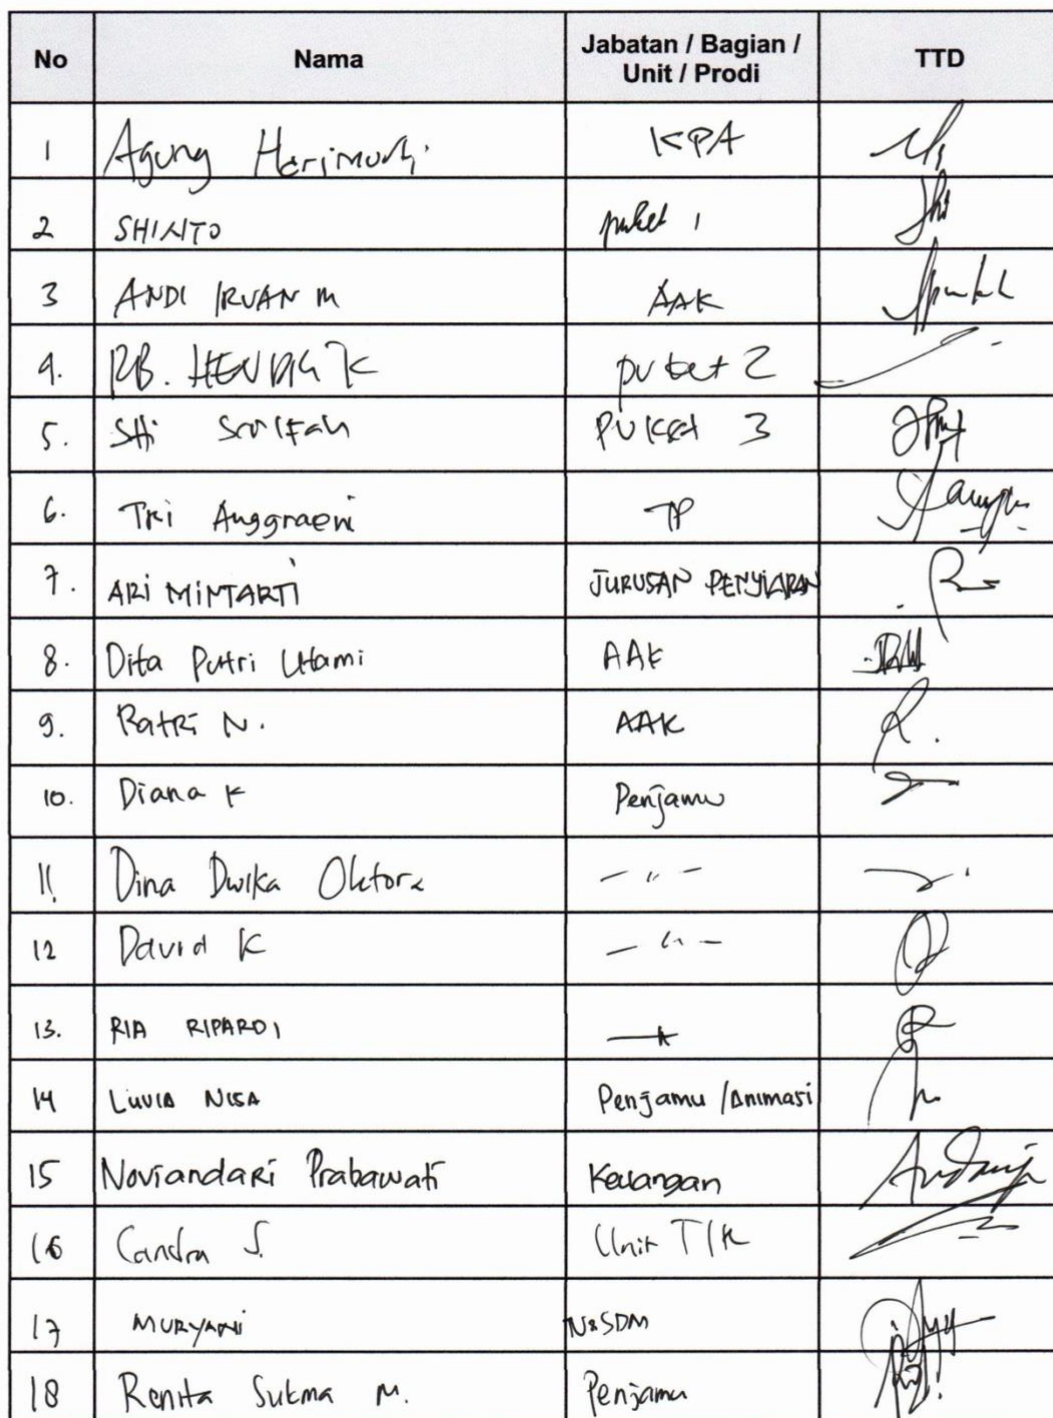 No Nama Jabatan / Bagian / Unit / Prodi TTD
1 Agung Harimurti KPA
2 SHINTO puket 1
3 ANDI IRVAN M AAK
4. RB. HENDRI K puket 2
5. Siti puket 3
6. Tri Anggraeni TP
7. ARI MINTARTI JURUSAN PENYIARAN
8. Dita Putri Utami AAK
9. Ratri N. AAK
10. Diana K Penjamu
11. Dina Dwika Oktora - " -
12 David K - " -
13. RIA RIPARDI
14 LIVIA NISA Penjamu /Animasi
15 Noviandari Prabawati Keuangan
16 Candra S. Unit TIK
17 MURYANI N&SDM
18 Renita Sukma M. Penjamu